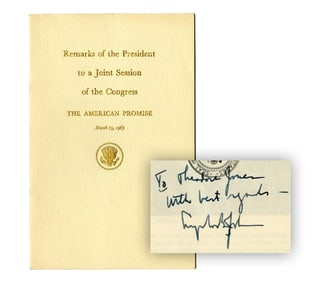 Remarks of the President
to a Joint Session
of the Congress
THE AMERICAN PROMISE
March 15, 1965
To Theodore
with best regards —
Lyndon B. Johnson